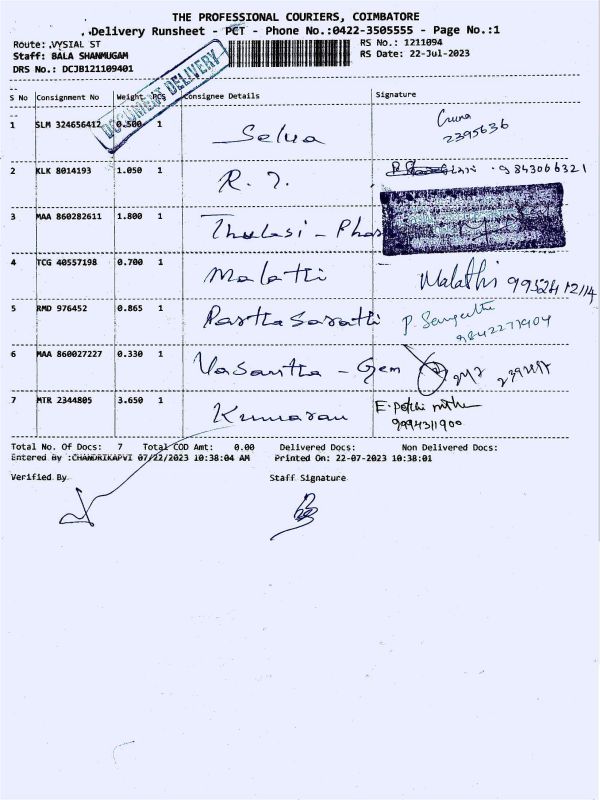 THE PROFESSIONAL COURIERS, COIMBATORE
Delivery Runsheet - PCT - Phone No.:0422-3505555 - Page No.:1
Route: VYSIAL ST
RS No.: 1211094
Staff: BALA SHANMUGAM
RS Date: 22-Jul-2023
DRS No.: DCJB121109401
DOCUMENT DELIVERY
S No Consignment No Weight PCS Consignee Details Signature
1 SLM 324656412 0.500 1 Selva
2395636
2 KLK 8014193 1.050 1 R. J. 9843066321
3 MAA 860282611 1.800 1 Thulasi - Phar
4 TCG 40557198 0.700 1 Malathi Malathi 9952412114
5 RMD 976452 0.865 1 Partha Sarathi P. Sangeetha
9842277404
6 MAA 860027227 0.330 1 Vasantha - Gem
7 MTR 2344805 3.650 1 Kumaran E. Potchi muthu
9994311900
Total No. Of Docs: 7 Total COD Amt: 0.00 Delivered Docs: Non Delivered Docs:
Entered By :CHANDRIKAPVI 07/22/2023 10:38:04 AM Printed On: 22-07-2023 10:38:01
Verified By Staff Signature